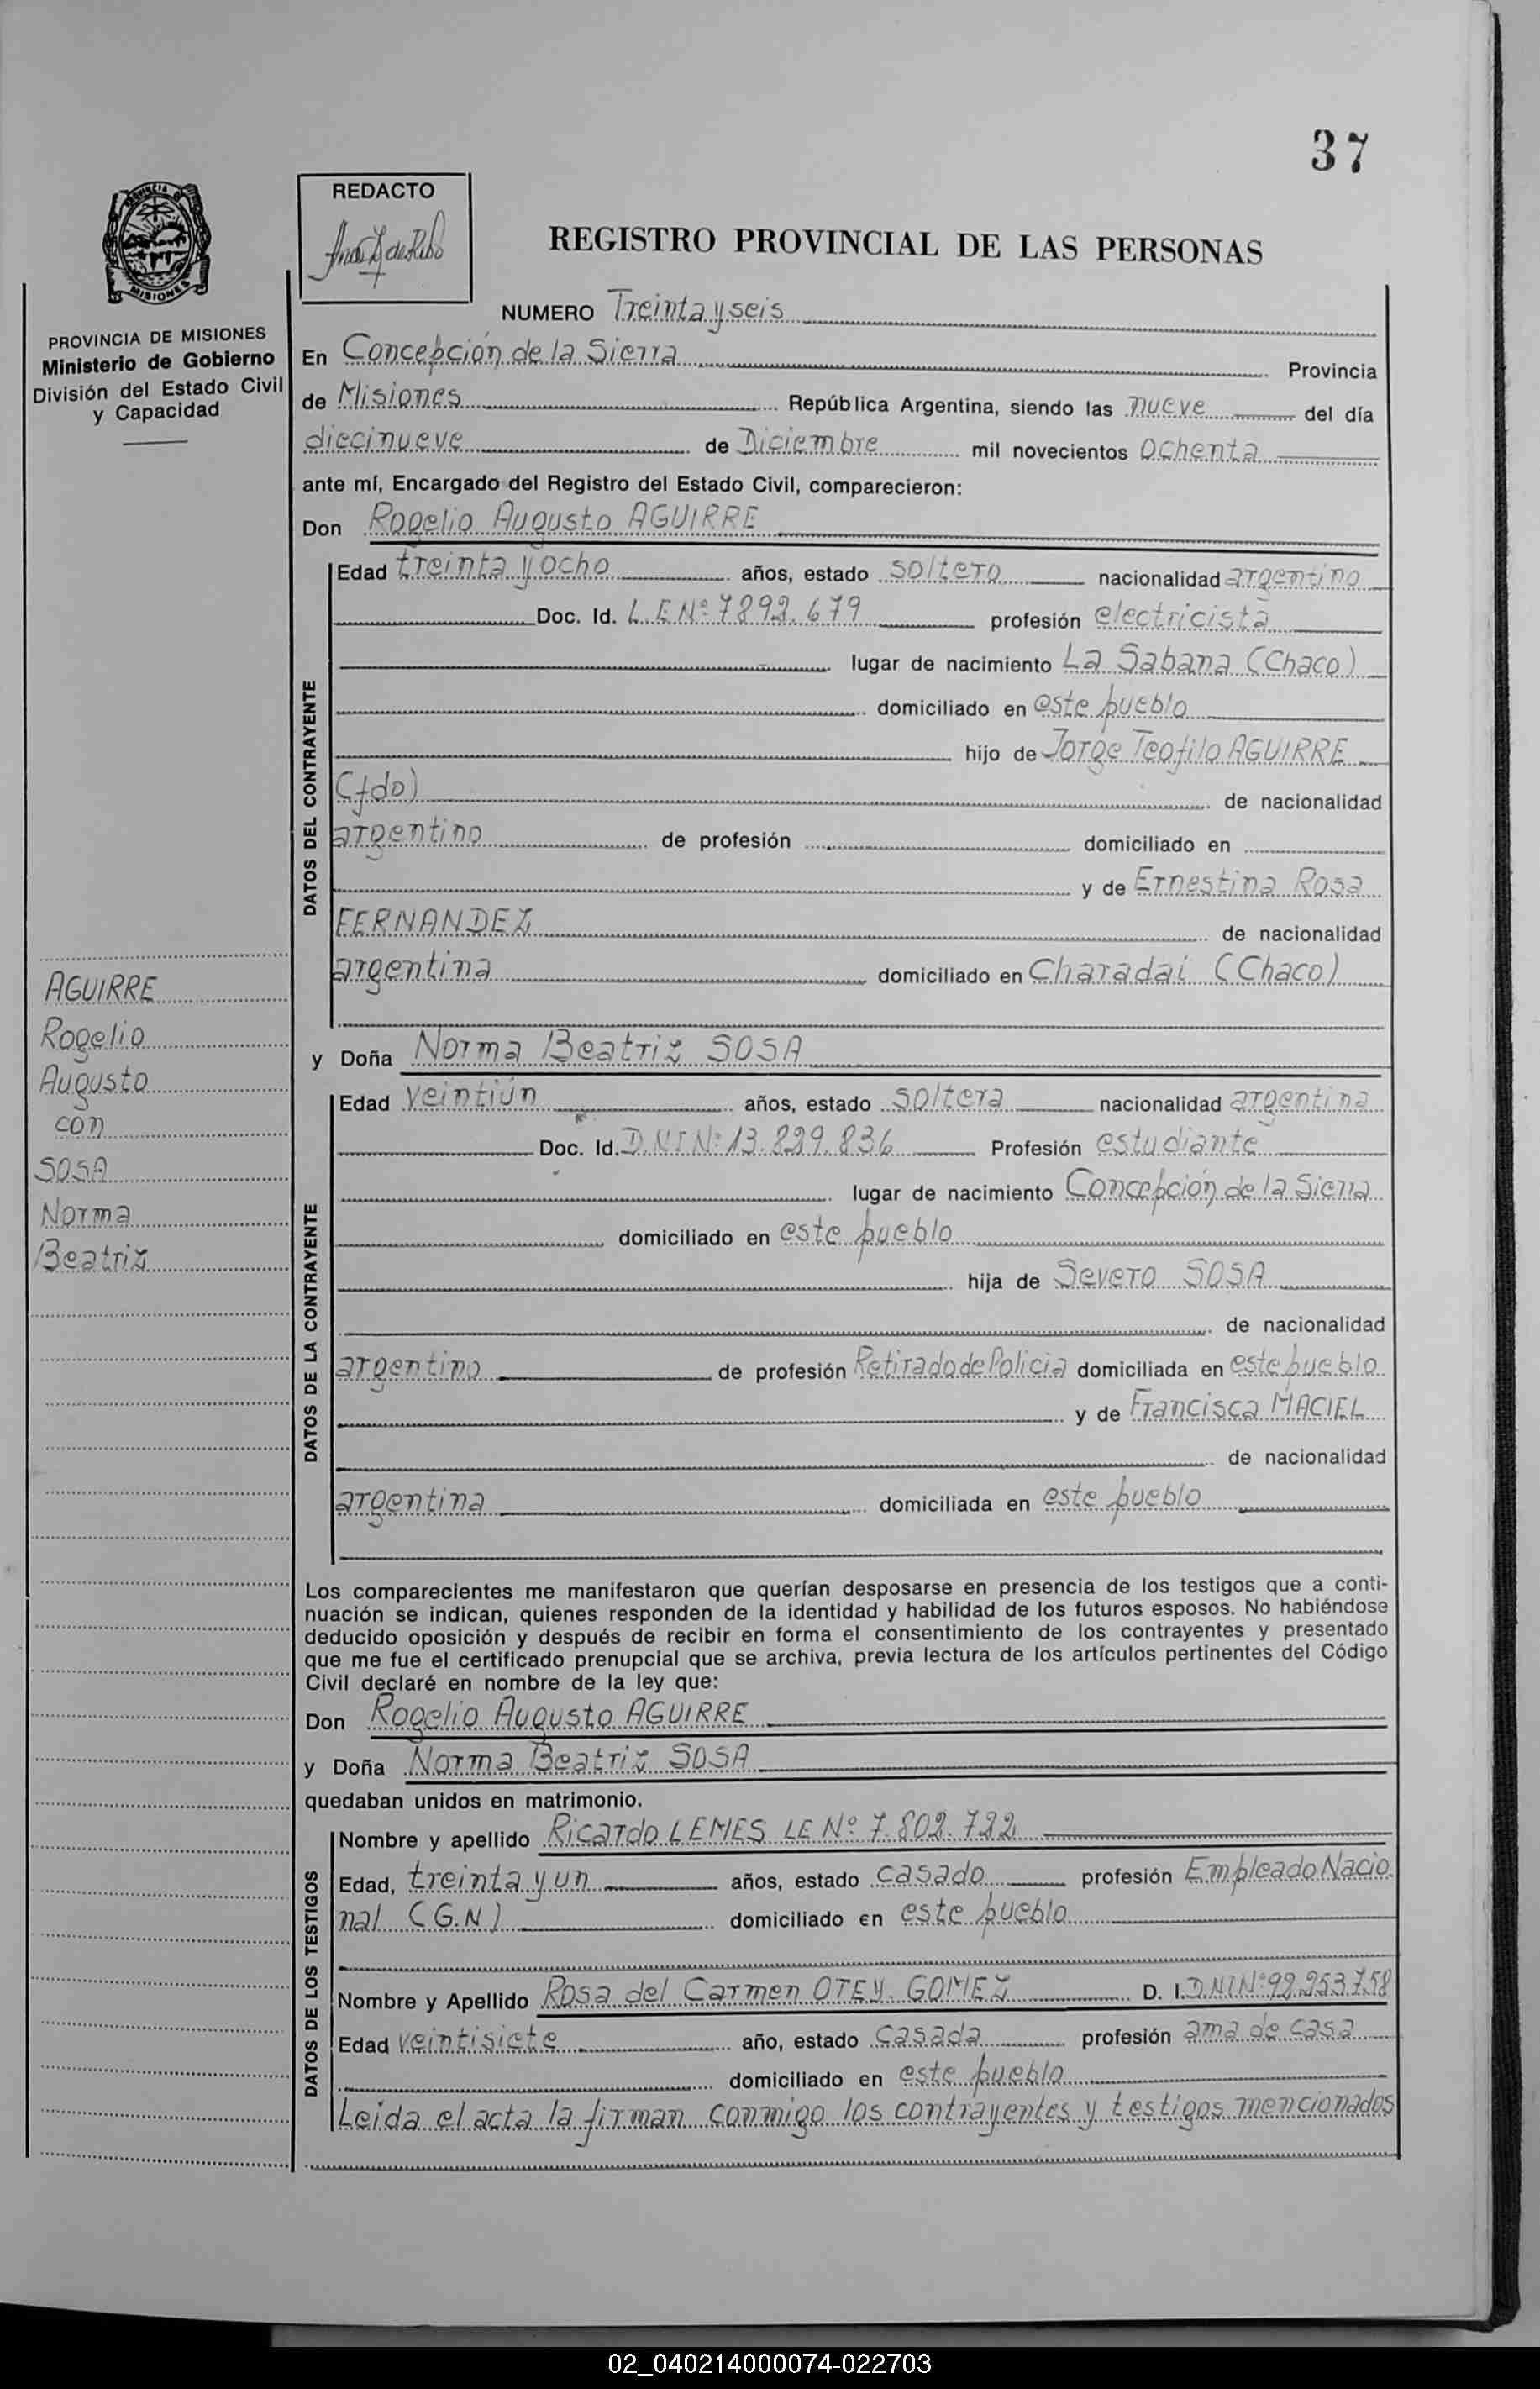 37
PROVINCIA DE
MISIONES
PROVINCIA DE MISIONES
Ministerio de Gobierno
División del Estado Civil
y Capacidad
REDACTO
REGISTRO PROVINCIAL DE LAS PERSONAS
NUMERO Treinta y seis
En Concepción de la Sierra Provincia
de Misiones República Argentina, siendo las nueve del día
diecinueve de Diciembre mil novecientos ochenta
ante mí, Encargado del Registro del Estado Civil, comparecieron:
Don Rogelio Augusto AGUIRRE
DATOS DEL CONTRAYENTE
Edad treinta y ocho años, estado soltero nacionalidad argentino
Doc. Id. L.E.Nº 7892.679 profesión electricista
lugar de nacimiento La Sabana (Chaco)
domiciliado en este pueblo
hijo de Jorge Teofilo AGUIRRE
(fdo) de nacionalidad
argentino de profesión domiciliado en
y de Ernestina Rosa
FERNANDEZ de nacionalidad
argentina domiciliado en Charadai (Chaco)
AGUIRRE
Rogelio
Augusto
con
SOSA
Norma
Beatriz
y Doña Norma Beatriz SOSA
DATOS DE LA CONTRAYENTE
Edad veintiún años, estado soltera nacionalidad argentina
Doc. Id. D.N.I.Nº 13.829.836 Profesión estudiante
lugar de nacimiento Concepción de la Sierra
domiciliado en este pueblo
hija de Severo SOSA
de nacionalidad
argentino de profesión Retirado de Policia domiciliada en este pueblo
y de Francisca MACIEL
de nacionalidad
argentina domiciliada en este pueblo
Los comparecientes me manifestaron que querían desposarse en presencia de los testigos que a conti-
nuación se indican, quienes responden de la identidad y habilidad de los futuros esposos. No habiéndose
deducido oposición y después de recibir en forma el consentimiento de los contrayentes y presentado
que me fue el certificado prenupcial que se archiva, previa lectura de los artículos pertinentes del Código
Civil declaré en nombre de la ley que:
Don Rogelio Augusto AGUIRRE
y Doña Norma Beatriz SOSA
quedaban unidos en matrimonio.
DATOS DE LOS TESTIGOS
Nombre y apellido Ricardo LEMES LE Nº 7.802.722
Edad, treinta y un años, estado casado profesión Empleado Nacio
nal (G.N) domiciliado en este pueblo
Nombre y Apellido Rosa del Carmen OTEY GOMEZ D. I. DNI Nº 92.253.758
Edad veintisiete año, estado casada profesión ama de casa
domiciliado en este pueblo
Leida el acta la firman conmigo los contrayentes y testigos mencionados
02_040214000074-022703